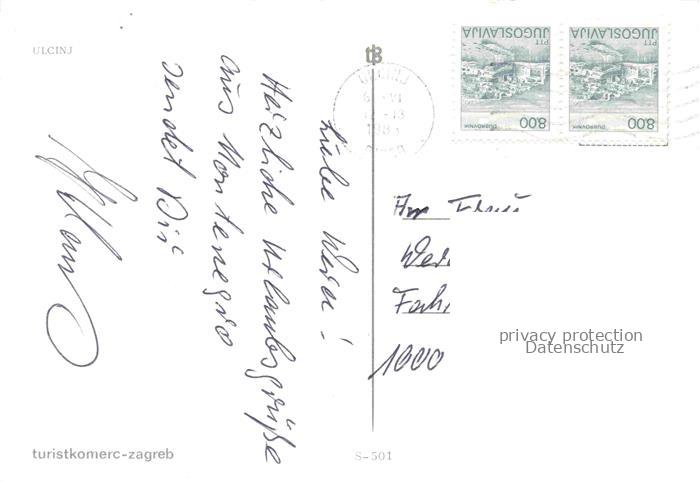 ULCINJ
Liebe Wera!
Herzliche Urlaubsgrüße
aus Montenegro
sendet Dir
Klaus
tB
ULCINJ
JUGOSLAVIJA
PTT
DUBROVNIK
8.00
JUGOSLAVIJA
PTT
DUBROVNIK
8.00
An
1000
privacy protection
Datenschutz
turistkomerc-zagreb
S-501